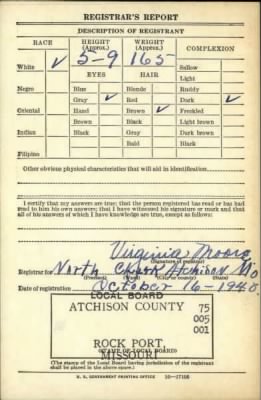 REGISTRAR'S REPORT
DESCRIPTION OF REGISTRANT
RACE HEIGHT (Approx.) WEIGHT (Approx.) COMPLEXION
White ✓ 5-9 165 Sallow
EYES HAIR Light
Negro Blue Blonde Ruddy
Gray ✓ Red Dark ✓
Oriental Hazel Brown ✓ Freckled
Brown Black Light brown
Indian Black Gray Dark brown
Bald Black
Filipino
Other obvious physical characteristics that will aid in identification
I certify that my answers are true; that the person registered has read or has had
read to him his own answers; that I have witnessed his signature or mark and that
all of his answers of which I have knowledge are true, except as follows:
Virginia Moore
(Signature of registrar)
Registrar for North Clark Atchison Mo
(Precinct) (Ward) (City or County) (State)
Date of registration October 16-1940.
LOCAL BOARD
ATCHISON COUNTY 75
005
001
ROCK PORT,
(STAMP OF LOCAL BOARD)
MISSOURI
(The stamp of the Local Board having jurisdiction of the registrant
shall be placed in the above space.)
U. S. GOVERNMENT PRINTING OFFICE 16—17105